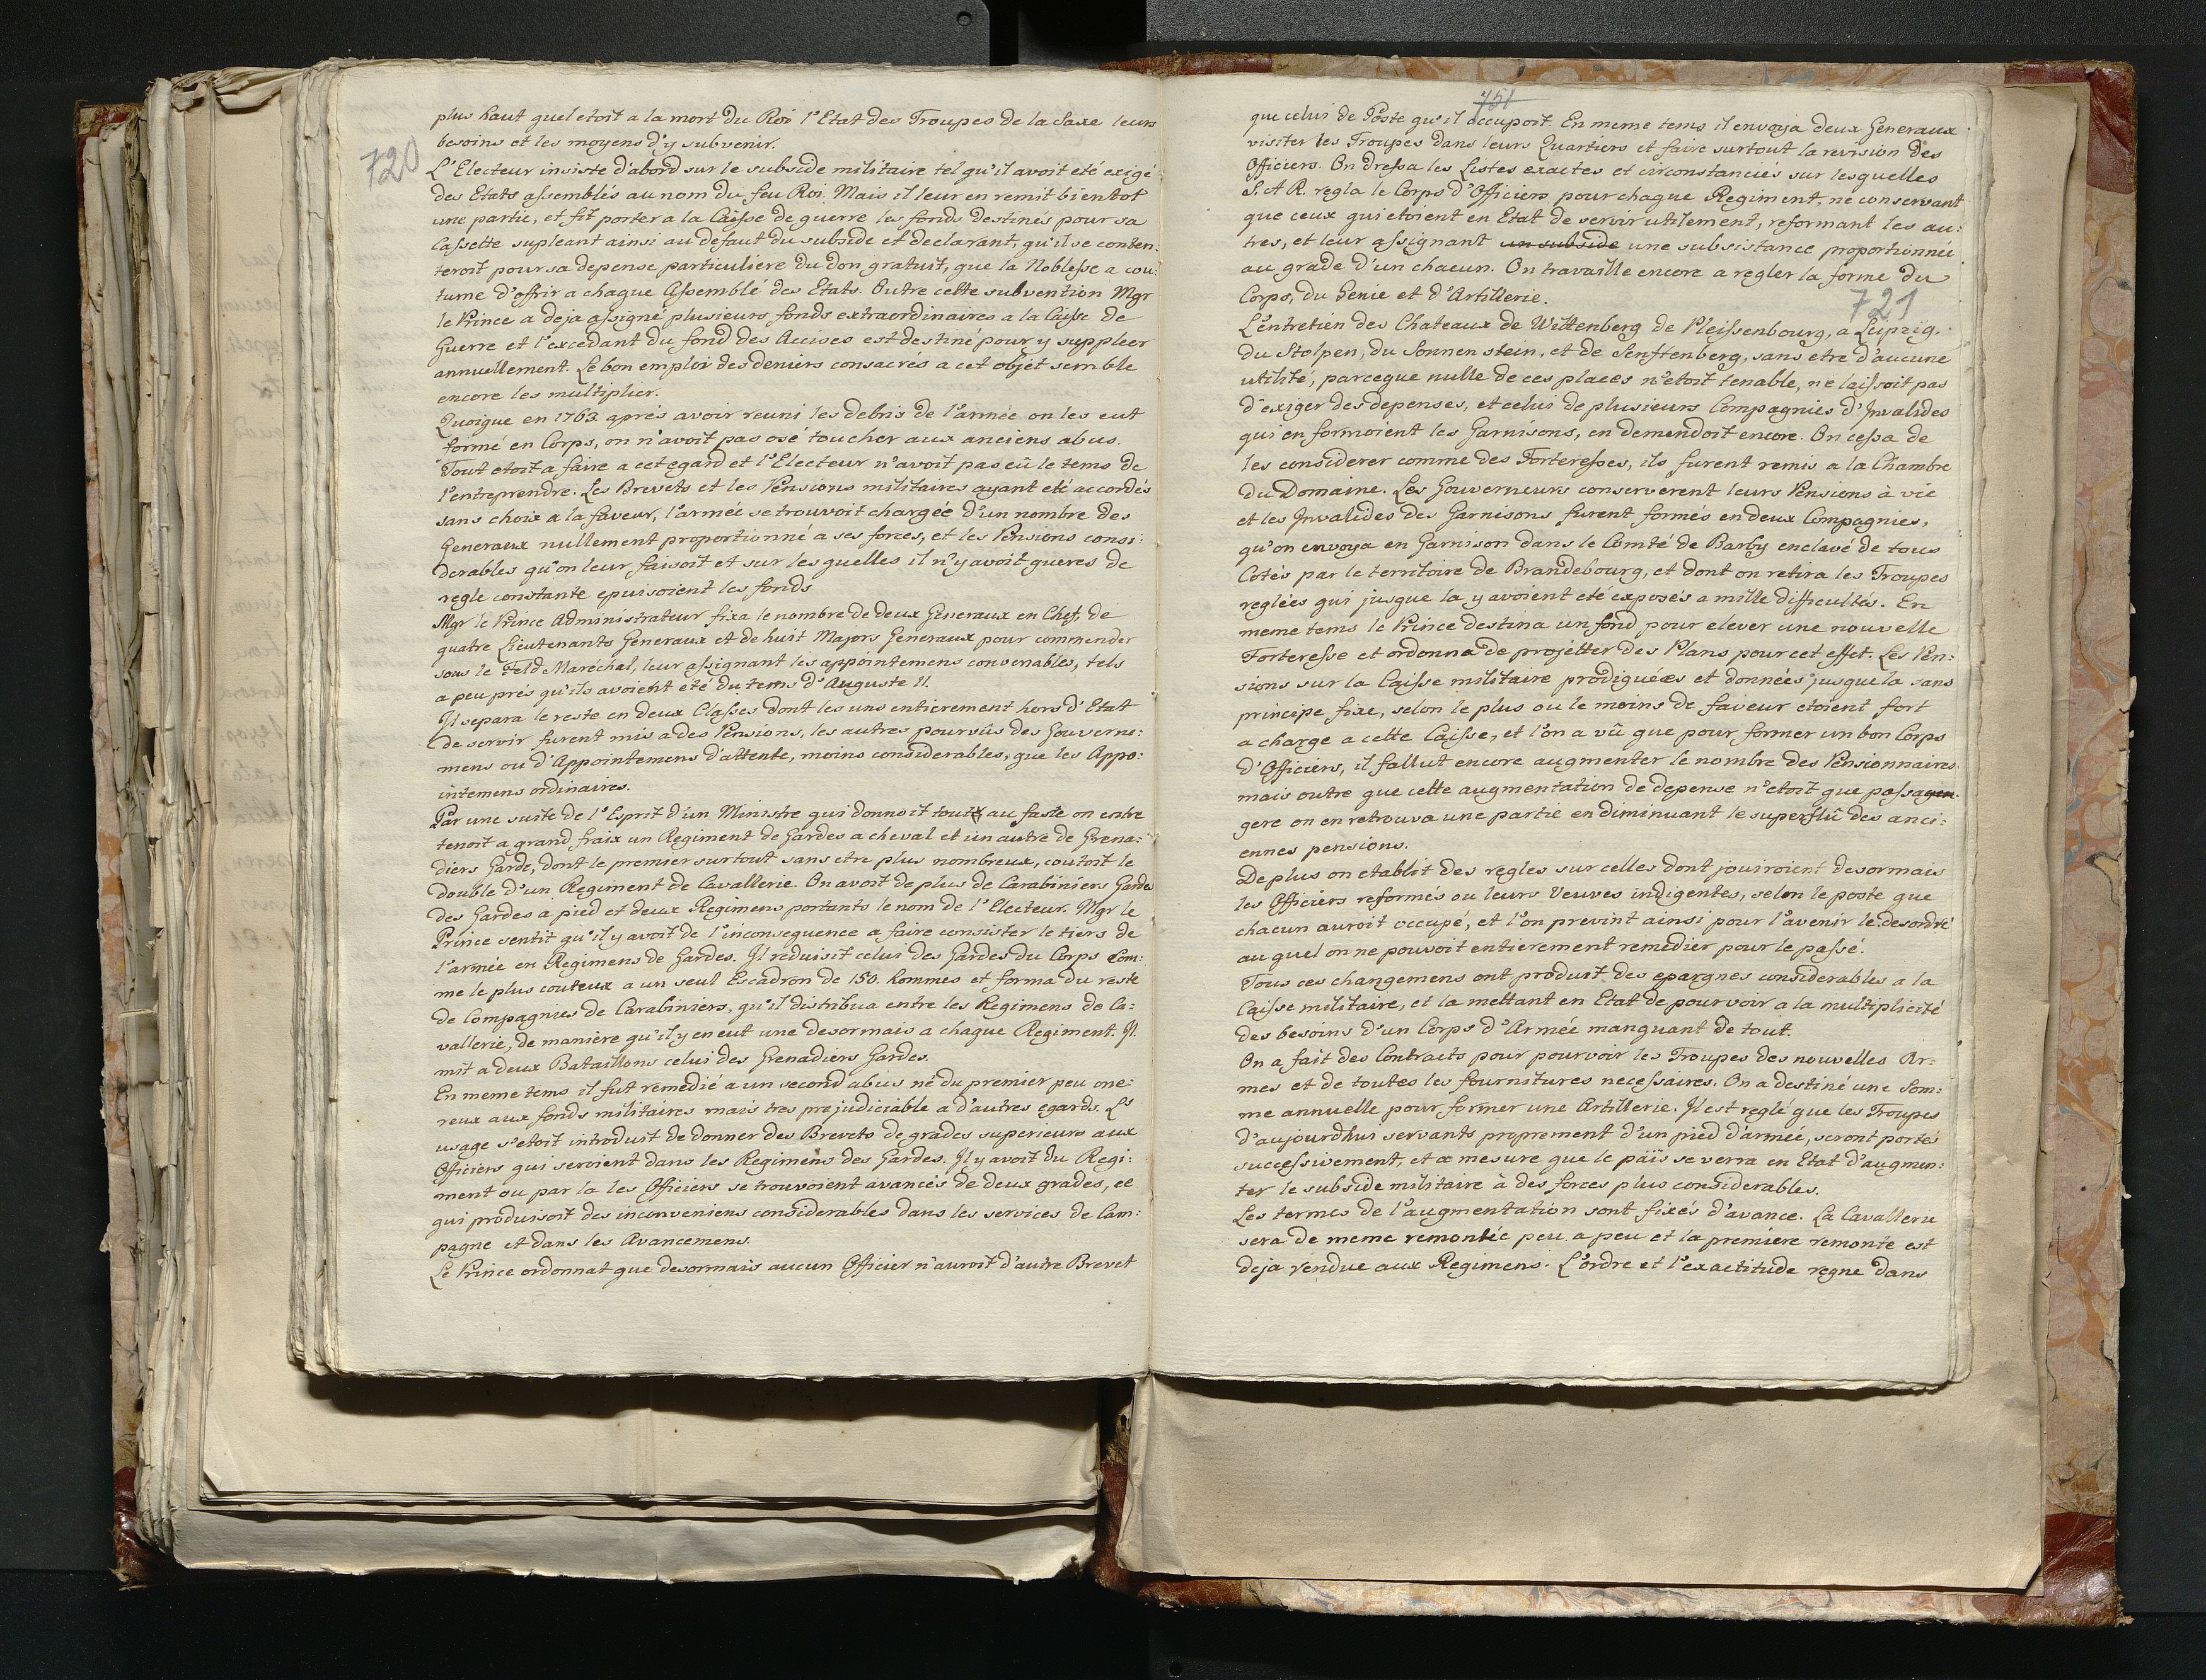 720
plus haut quel etoit a la mort du Roi l'Etat des Troupes de la Saxe leurs
besoins et les moyens d'y subvenir.
L'Electeur insiste d'abord sur le subside militaire tel qu'il avoit eté exigé
des Etats assemblés au nom du feu Roi. Mais il leur en remit bientot
une partie, et fit porter a la Caisse de guerre les fonds destinés pour sa
Cassette supleant ainsi au defaut du subside et declarant, qu'il se conten:
teroit pour sa depense particuliere du don gratuit, que la Noblesse a cou:
tume d'offrir a chaque Assemblé des Etats. Outre cette subvention Mgr
le Prince a deja assigné plusieurs fonds extraordinaires a la Caisse de
Guerre et l'excedant du fond des Accises est destiné pour y suppleer
annuellement. Le bon emploi des deniers consacrés a cet objet semble
encore les multiplier.
Quoique en 1763 aprés avoir reuni les debris de l'armée on les eut
formé en Corps, on n'avoit pas osé toucher aux anciens abus.
Tout etoit a faire a cet egard et l'Electeur n'avoit pas eû le tems de
l'entreprendre. Les Brevets et les Pensions militaires ayant eté accordés
sans choix a la faveur, l'armée se trouvoit chargée d'un nombre des
Generaux nullement proportionné a ses forces, et les Pensions consi:
derables qu'on leur faisoit et sur les quelles il n'y avoit gueres de
regle constante epuisoient les fonds
Mgr le Prince Administrateur fixa le nombre de deux Generaux en Chef, de
quatre Lieutenants Generaux et de huit Majors Generaux pour commender
sous le Feld Maréchal, leur assignant les appointemens convenables, tels
a peu prés qu'ils avoient eté du tems d'Auguste II.
Il separa le reste en deux Classes dont les uns entierement hors d'Etat
de servir furent mis a des Pensions, les autres pourvûs des Gouverne:
mens ou d'Appointemens d'attente, moins considerables, que les Appo:
intemens ordinaires.
Par une suite de l'Esprit d'un Ministre qui donnoit tout au faste on entre
tenoit a grand fraix un Regiment de Gardes a cheval et un autre de Grena:
diers Garde, dont le premier surtout sans etre plus nombreux, coutoit le
double d'un Regiment de Cavallerie. On avoit de plus de Carabiniers Gardes
des Gardes a pied et deux Regimens portants le nom de l'Electeur. Mgr le
Prince sentit qu'il y avoit de l'inconsequence a faire consister le tiers de
l'armée en Regimens de Gardes. Il reduisit celui des Gardes du Corps com:
me le plus couteux a un seul Escadron de 150. hommes et forma du reste
de Compagnies de Carabiniers, qu'il distribua entre les Regimens de Ca:
vallerie, de maniere qu'il y en eut une desormais a chaque Regiment. Il
mit a deux Bataillons celui des Grenadiers Gardes.
En meme tems il fut remedié a un second abus né du premier peu one:
reux aux fonds militaires mais tres prejudiciable a d'autres egards. L'
usage s'etoit introduit de donner des Brevets de grades superieurs aux
Officiers qui servient dans les Regimens des Gardes. Il y avoit du Regi:
ment ou par la les Officiers se trouvoient avancés de deux grades, ce
qui produisoit des inconveniens considerables dans les services de Cam:
pagne et dans les Avancemens.
Le Prince ordonnat que desormais aucun Officier n'auroit d'autre Brevet
751
que celui de Poste qu'il occupoit. En meme tems il envoya deux Generaux
visiter les Troupes dans leurs Quartiers et faire surtout la revision des
Officiers. On dressa les Listes exactes et circonstanciés sur lesquelles
S. A R. regla le Corps d'Officiers pour chaque Regiment, ne conservant
que ceux qui etoient en Etat de servir utilement, reformant les au:
tres, et leur assignant un subside une subsistance proportionné
au grade d'un chacun. On travaille encore a regler la forme du
Corps, du Genie et d'Artillerie.
721
L'entretien des Chateaux de Wittenberg de Pleissenbourg, a Leipzig,
du Stolpen, du Sonnenstein, et de Senftenberg, sans etre d'aucune
utilité, parceque nulle de ces places n'etoit tenable, ne laissoit pas
d'exiger des depenses, et celui de plusieurs Compagnies d'Invalides
qui en formoient les Garnisons, en demendoit encore. On cessa de
les considerer comme des Forteresses, ils furent remis a la Chambre
du Domaine. Les Gouverneurs conserverent leurs Pensions à vie
et les Invalides des Garnisons furent formés en deux Compagnies,
qu'on envoya en Garnison dans le Comté de Barby enclavé de tous
Cotés par le territoire de Brandebourg, et dont on retira les Troupes
reglées qui jusque la y avoient eté exposés a mille difficultés. En
meme tems le Prince destina un fond pour elever une nouvelle
Forteresse et ordonna de projetter des Plans pour cet effet. Les Pen:
sions sur la Caisse militaire prodiguées et données jusque la sans
principe fixe, selon le plus ou le moins de faveur etoient fort
a charge a cette Caisse, et l'on a vû que pour former un bon Corps
d'Officiers, il fallut encore augmenter le nombre des Pensionnaires
mais outre que cette augmentation de depense n'etoit que passagen
gere on en retrouva une partie en diminuant le superflû des anci:
ennes pensions.
De plus on etablit des regles sur celles dont jouiroient desormais
les Officiers reformés ou leurs Veuves indigentes, selon le poste que
chacun auroit occupé, et l'on prevint ainsi pour l'avenir le desordre
au quel on ne pouvoit entierement remedier pour le passé.
Tous ces changemens ont produit des epargnes considerables a la
Caisse militaire, et la mettant en Etat de pourvoir a la multiplicité
des besoins d'un Corps d'Armée manquant de tout.
On a fait des Contracts pour pourvoir les Troupes des nouvelles Ar:
mes et de toutes les fournitures necessaires. On a destiné une Som:
me annuelle pour former une Artillerie. Il est reglé que les Troupes
d'aujourdhui servants proprement d'un pied d'armée, seront portés
successivement, et a mesure que le païs se verra en Etat d'augmen:
ter le subside militaire à des forces plus considerables.
Les termes de l'augmentation sont fixés d'avance. La Cavallerie
sera de meme remontée peu a peu et la premiere remonte est
deja rendue aux Regimens. L'ordre et l'exactitude regne dans